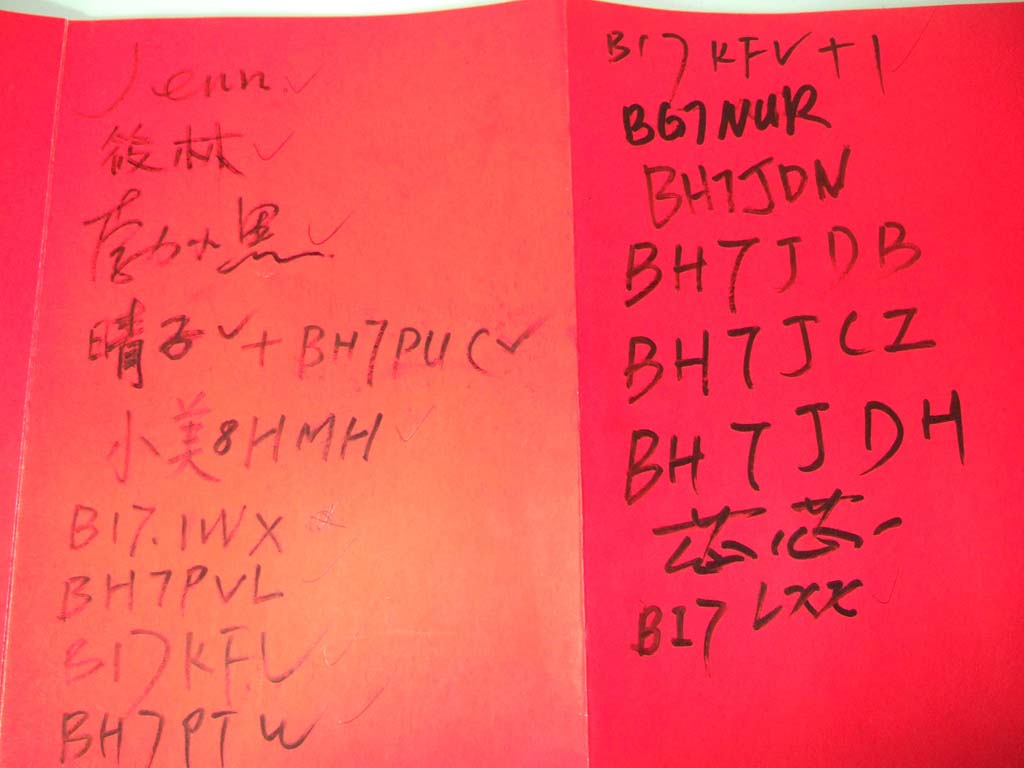 Jenn.
筱林
李小黑
晴子 + BH7PUC
小美8HMH
BI7.IWX
BH7PVL
BI7KFV
BH7PTW
BI7KFV+1
BG7NUR
BH7JDN
BH7JDB
BH7JCZ
BH7JDH
芯芯
BI7LXX